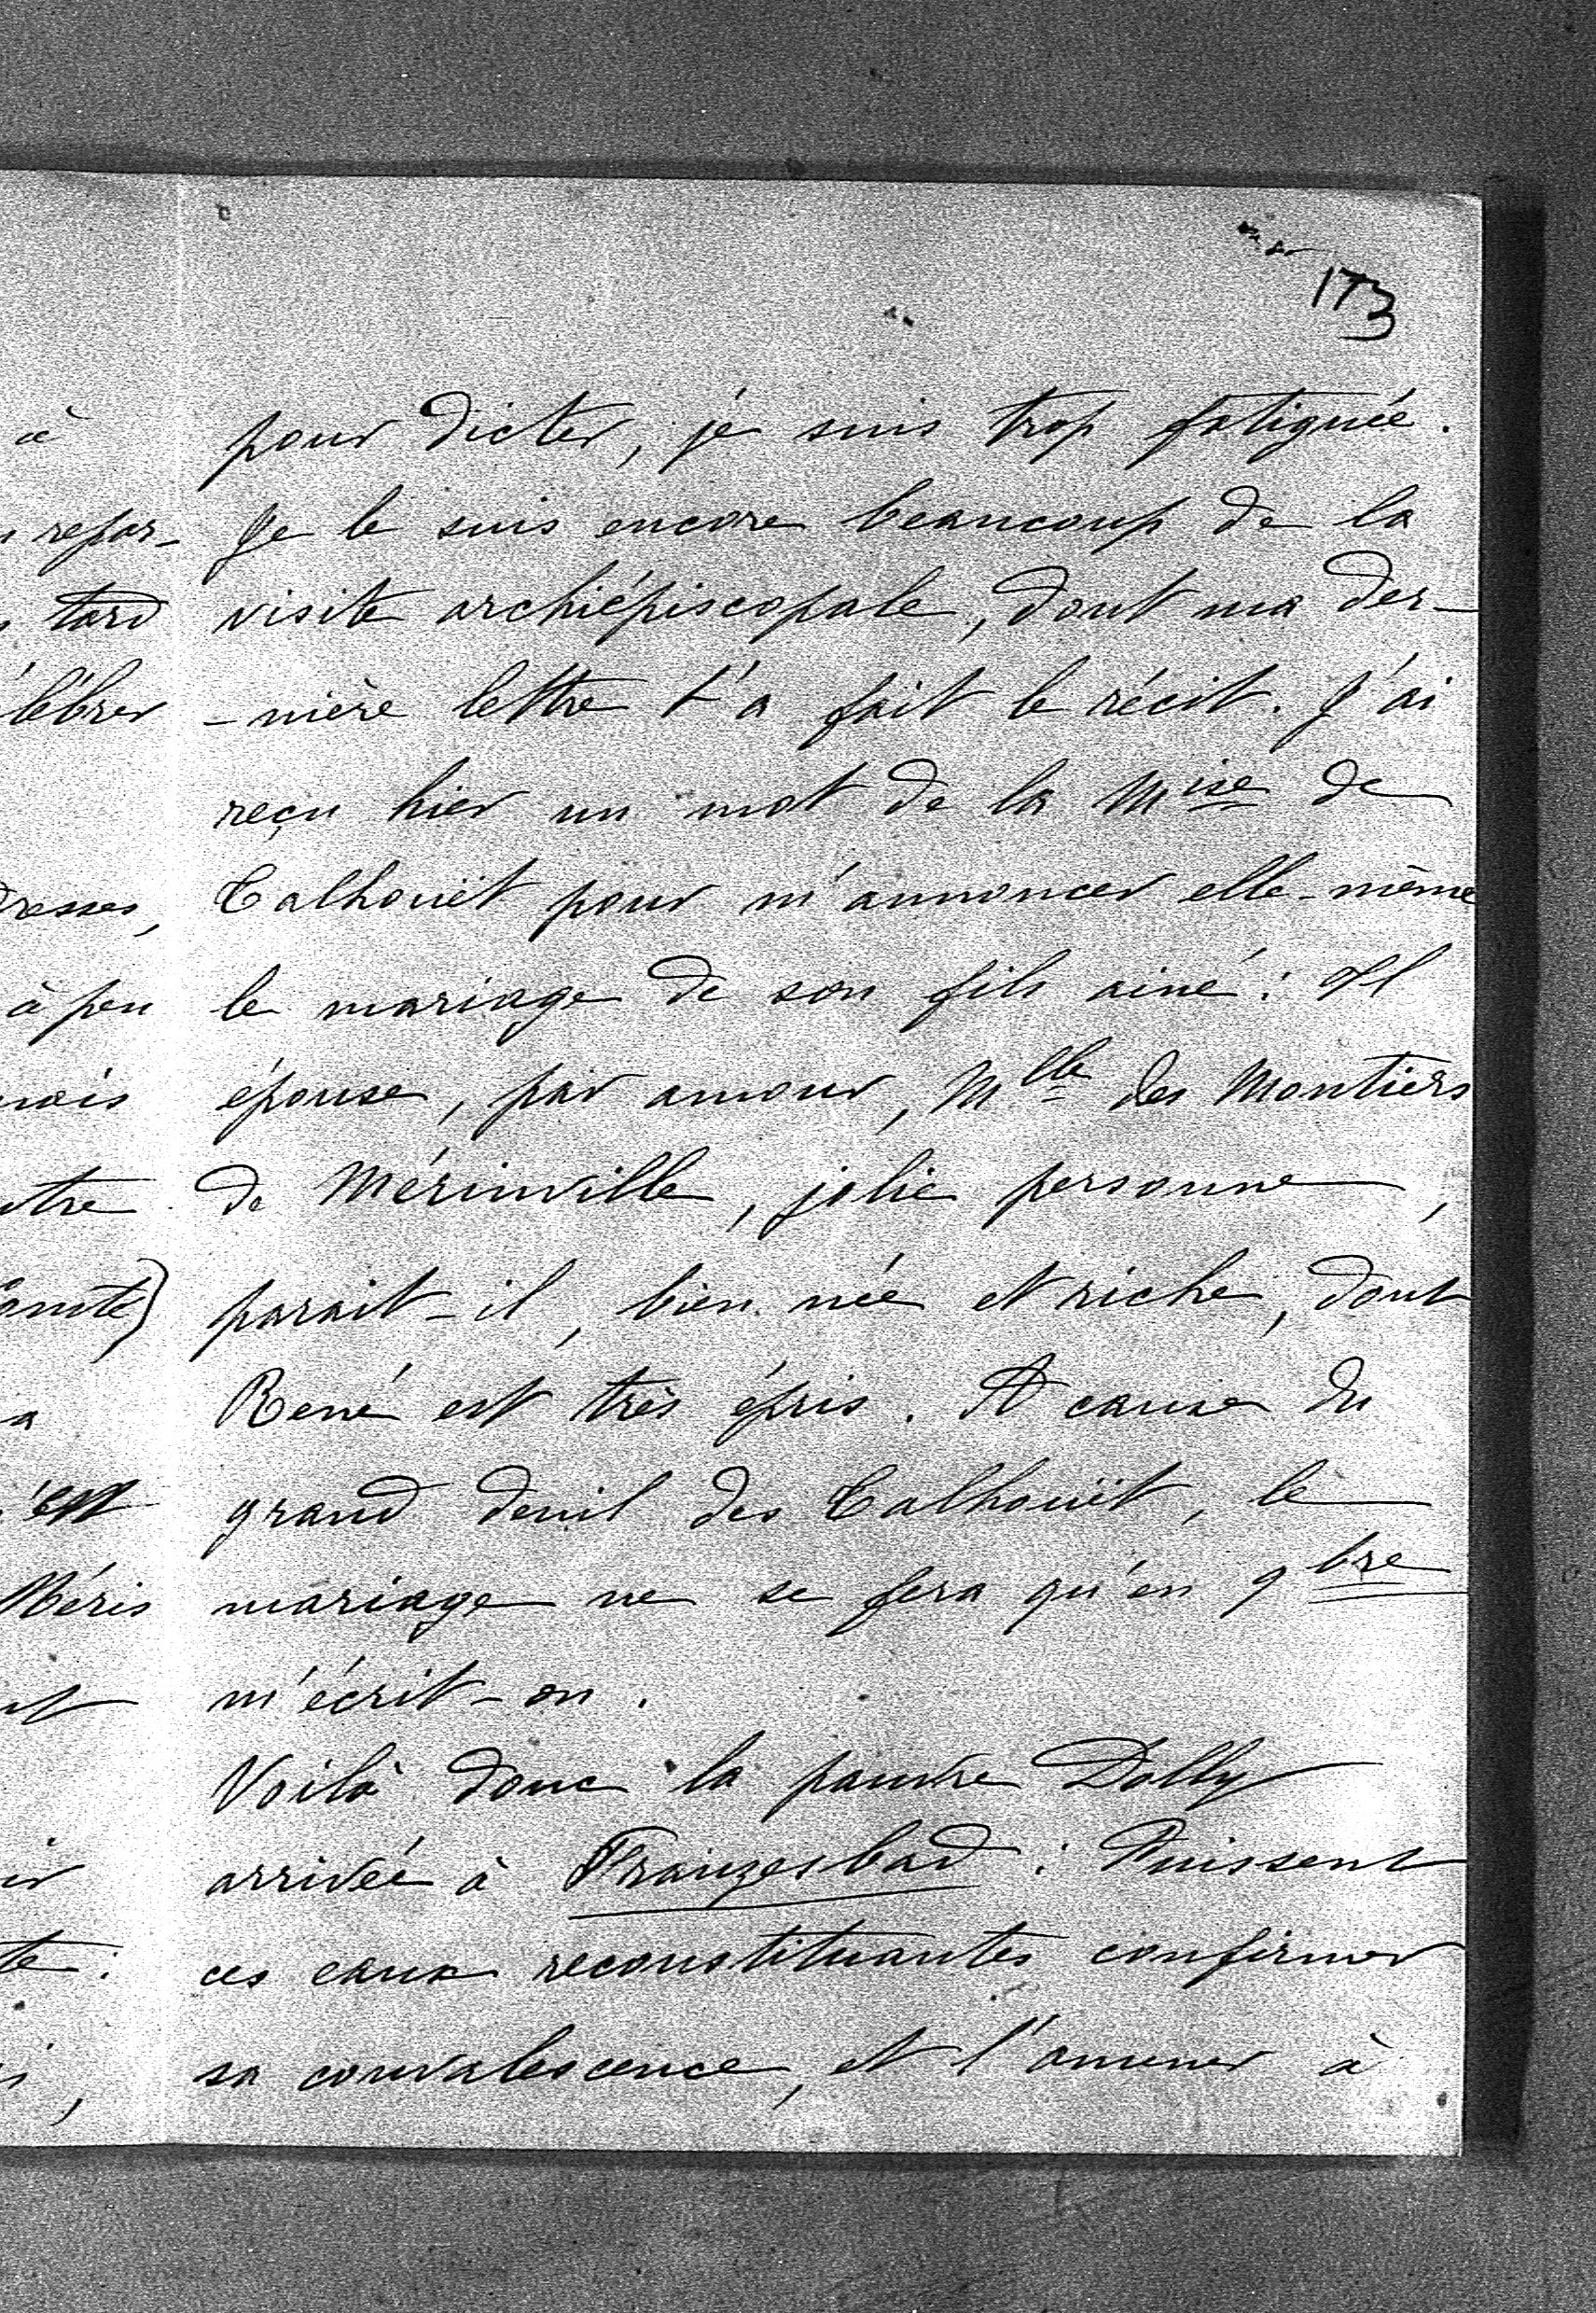 173
pour dicter, je suis trop fatiguée.
Je le suis encore beaucoup de la
visite archiépiscopale, dont ma der-
-nière lettre t'a fait le récit. J'ai
reçu hier un mot de la Mise de
Talhouët pour m'annoncer elle-même
le mariage de son fils ainé : Il
épouse, par amour, Mlle des Montiers
de Mérinville, jolie personne,
parait-il, bien née et riche, dont
René est très épris. A cause du
grand deuil des Talhouët, le
mariage ne se fera qu'en 9bre
m'écrit-on.
Voilà donc la pauvre Dolly
arrivée à Franzesbad : Puissent
ces eaux reconstituantes confirmer
sa convalescence, et l'amener à
à
repar-
tard
lébrer
resses,
à peu
mais
utre
omte)
a
Néris
te.